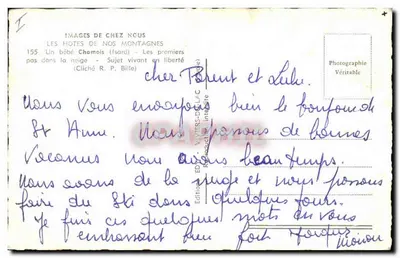 I
IMAGES DE CHEZ NOUS
LES HOTES DE NOS MONTAGNES
155 Un bébé Chamois (Isard) - Les premiers
pas dans la neige - Sujet vivant en liberté
(Cliché R. P. Bille)
Photographie
Véritable
cher Parent et Lulu.
Nous vous envoyons bien le bonjour de
St Anne. Nous passons de bonnes
Vacances nous avons beau temps.
Nous avons de la neige et nous pensons
faire du Ski dans quelques jours.
Je finis ces quelques mots en vous
embrassant bien fort